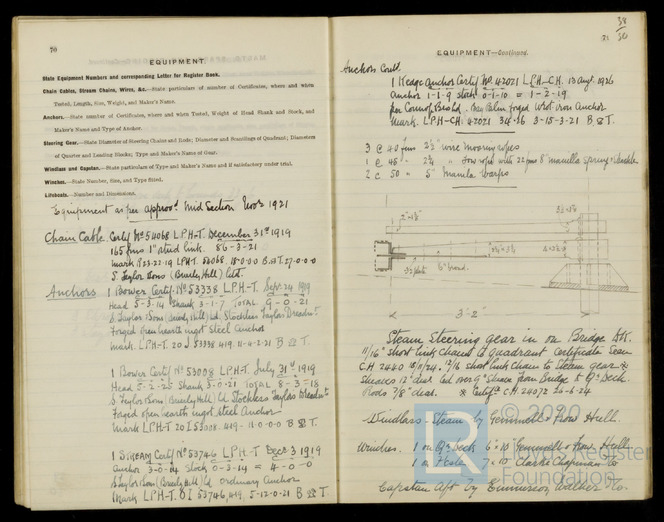 70
EQUIPMENT
State Equipment Numbers and corresponding Letter for Register Book.
Chain Cables, Stream Chains, Wires, &c.—State particulars of number of Certificates, where and when
Tested, Length, Size, Weight, and Maker's Name.
Anchors.—State number of Certificates, where and when Tested, Weight of Head Shank and Stock, and
Maker's Name and Type of Anchor.
Steering Gear.—State Diameter of Steering Chains and Rods; Diameter and Scantlings of Quadrant; Diameters
of Quarter and Leading Blocks; Type and Maker's Name of Gear.
Windlass and Capstan.—State particulars of Type and Maker's Name and if satisfactory under trial.
Winches.—State Number, Size, and Type fitted.
Lifeboats.—Number and Dimensions.
Equipment as per approvd. Mid Section 1921
Chain Cable. Certf No 54068 L.P.H-T. December 31st 1919
165 fms 1" stud link. 86-3-21
L.P.H-T. 54068. 18-0-0-0 B.&T. 27-0-0-0
S. Taylor & Sons (Brierly Hill) Ltd.
Anchors 1 Bower Certif. No 53338 L.P.H-T. Sepr. 24 1919
Head 5-3-14 Shank 3-1-7 Total 9-0-21
S. Taylor & Sons (Brierly Hill) Ld. Stockless Taylors
Forged open hearth ingot Steel Anchor
Mark. L.P.H-T. 20 I 53338 419. 11-4-2-21 B T.
1 Bower Certif No 53008 L.P.H-T. July 31st 1919
Head 5-2-25 Shank 3-0-21 Total 8-3-18
S. Taylor & Sons (Brierly Hill) Ld Stockless Taylors
Forged open hearth ingot Steel Anchor
Mark L.P.H-T 20 I 53008. 419-11-0-0-0 B T.
1 Stream Certif No 53746 L.P.H-T. Decr 3 1919
Anchor 3-0-14 Stock 0-3-14 = 4-0-0
S Taylor & Sons (Brierly Hill) Ld ordinary Anchor
Mark L.P.H-T. 53746, 419, 5-12-0-21 B T.
38
30
71
EQUIPMENT—Continued.
Anchors Contd.
1 Kedge anchor Certif No. 42021 L.P.H-CH. 13 augt. 1926
anchor 1-1-9 stock 0-1-10 = 1-2-19
forged Wrot iron Anchor
Mark. L.P.H-CH. 42021 34-26 3-15-3-21 B T.
3 @ 40 fms 2½" wire mooring ropes
1 @ 45 " 2¾ " Tow rope with 22 fms 8" manilla spring & shackle
2 @ 50 " 5" Manila warps
2" × 1⅛"
6" broad.
3'-2"
Steam Steering gear in on Bridge Dk.
11/16" short link chains to Quadrant Certificate Seen
CH 2440 15/1/24. 12/16 short link chain to Steam gear
Sheaves 12" diar. Led over 9" Sheaves from Bridge to Qr Deck.
Rods 7/8" diar. Certif CH 24072 20-6-24
Windlass - Steam by Gemmell & Frow Hull.
Winches. 1 on Qr Deck 6" × 10" Gemmell & Frow. Hull
1 on Fcsle 7 × 10 Clarke Chapman Co
Capstan Aft by Emmerson, Walker Co.
© 2020
Lloyd's Register
Foundation